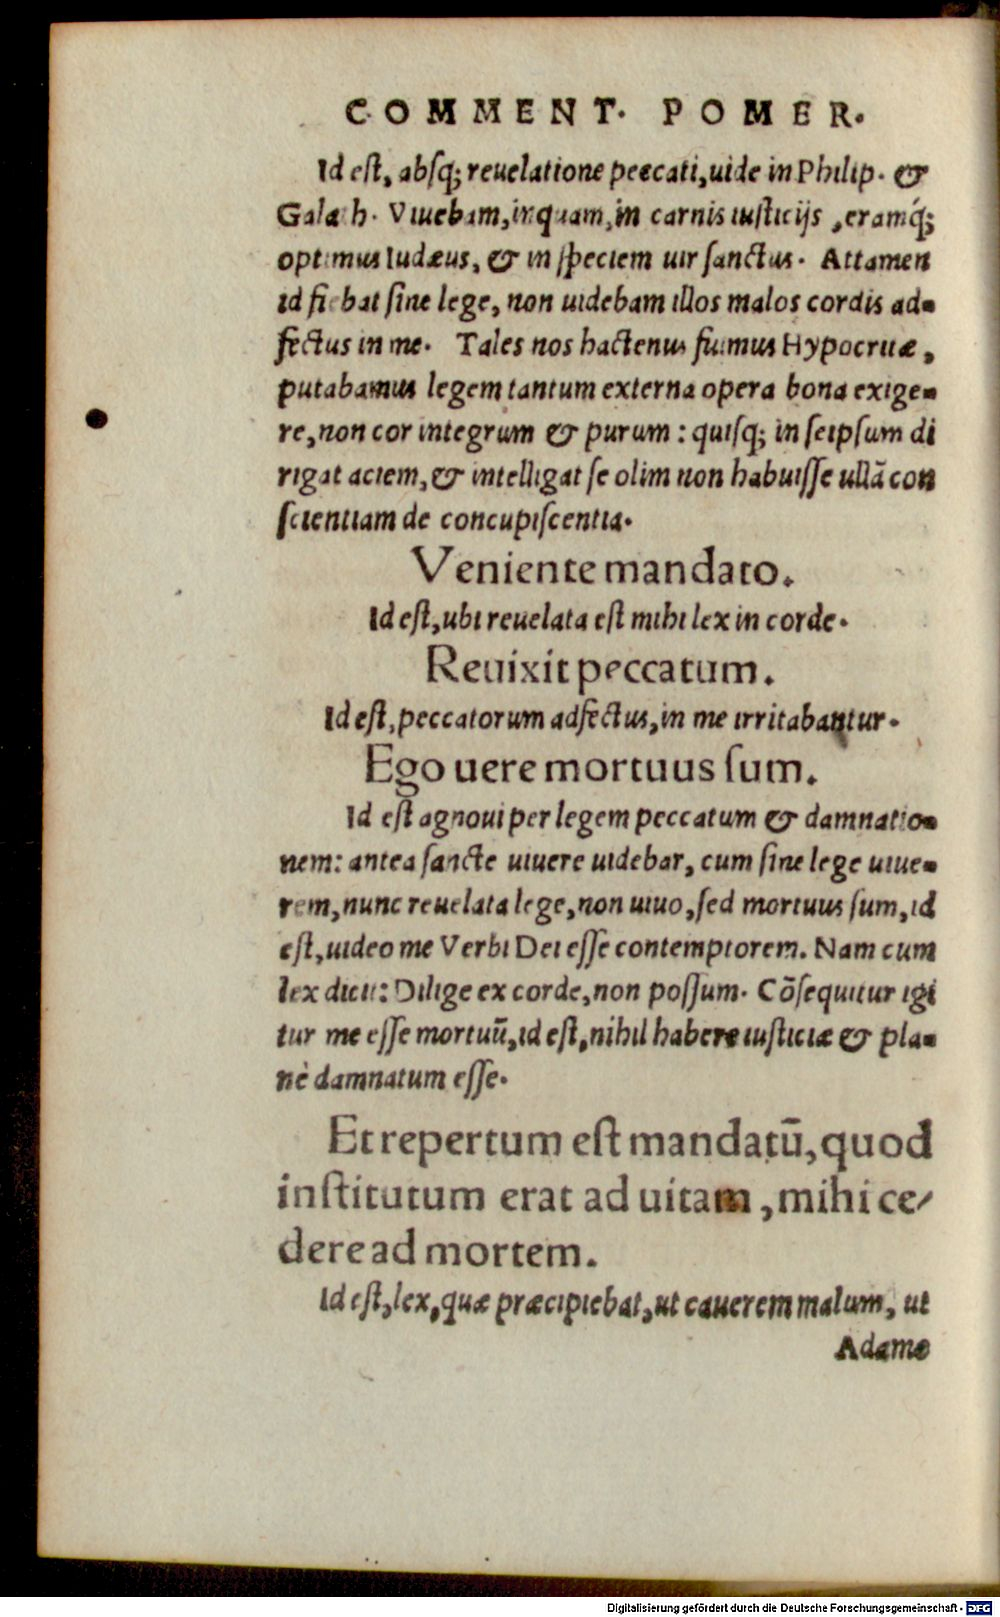 COMMENT. POMER.
Id eſt, abſq; reuelatione peccati, uide in Philip. &
Galath. Viuebam, inquam, in carnis iuſticijs, eramq́;
optimus Iudæus, & in ſpeciem uir ſanctus. Attamen
id fiebat ſine lege, non uidebam illos malos cordis ad-
fectus in me. Tales nos hactenus fuimus Hypocritæ,
putabamus legem tantum externa opera bona exige-
re, non cor integrum & purum: quiſq; in ſeipſum di
rigat aciem, & intelligat ſe olim non habuiſſe ullã con
ſcientiam de concupiſcentia.
Veniente mandato.
Id eſt, ubi reuelata eſt mihi lex in corde.
Reuixit peccatum.
Id eſt, peccatorum adfectus, in me irritabantur.
Ego uere mortuus ſum.
Id eſt agnoui per legem peccatum & damnatio-
nem: antea ſancte uiuere uidebar, cum ſine lege uiue-
rem, nunc reuelata lege, non uiuo, ſed mortuus ſum, id
eſt, uideo me Verbi Dei eſſe contemptorem. Nam cum
lex dicit: Dilige ex corde, non poſſum. Cõſequitur igi
tur me eſſe mortuũ, id eſt, nihil habere iuſticiæ & pla-
nè damnatum eſſe.
Et repertum eſt mandatũ, quod
inſtitutum erat ad uitam, mihi ce/
dere ad mortem.
Id eſt, lex, quæ præcipiebat, ut cauerem malum, ut
Adamæ
Digitalisierung gefördert durch die Deutsche Forschungsgemeinschaft - DFG